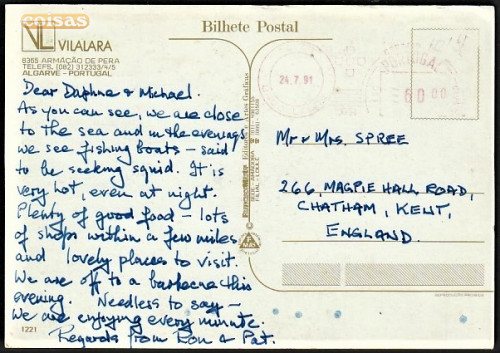 coisas
VL VILALARA
8365 ARMAÇÃO DE PERA
TELEFS. (082) 312333/4/5
ALGARVE - PORTUGAL
Bilhete Postal
24.7.91
PORTUGAL
60.00
Dear Daphne & Michael.
As you can see, we are close
to the sea and in the evenings
we see fishing boats - said
to be seeking squid. It is
very hot, even at night.
Plenty of good food - lots
of shops within a few miles
and lovely places to visit.
We are off to a barbecue this
evening. Needless to say -
we are enjoying every minute.
Regards from Ron & Pat.
Mr & Mrs. SPREE
266, MAGPIE HALL ROAD,
CHATHAM, KENT,
ENGLAND.
Artes Gráficas
1221